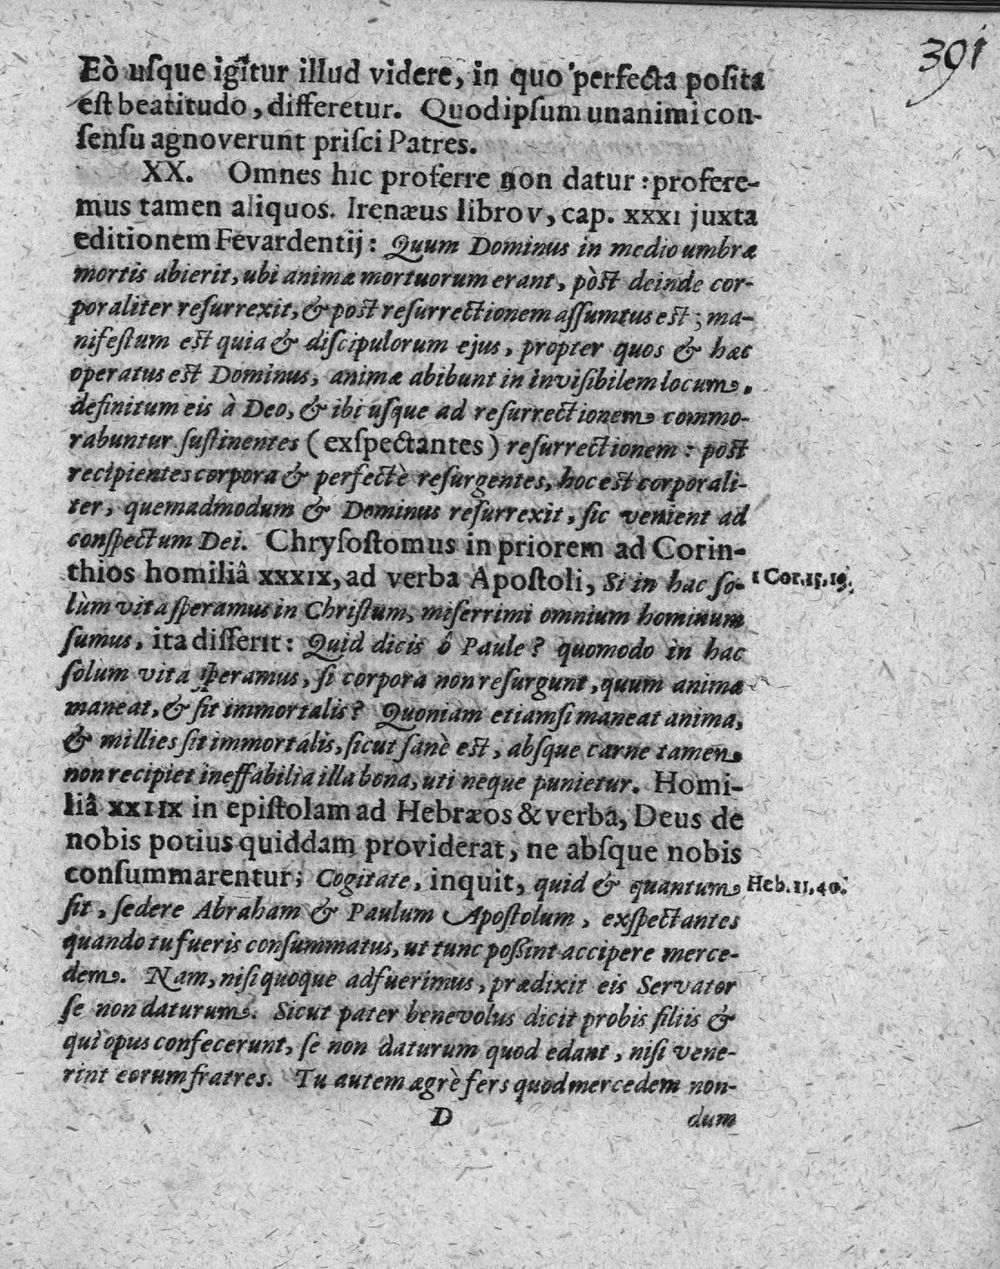 391
Eò uſque igitur illud videre, in quo perfecta poſita
eſt beatitudo, differetur. Quod ipſum unanimi con-
ſenſu agnoverunt priſci Patres.
XX. Omnes hic proferre non datur: profere-
mus tamen aliquos. Irenæus libro v, cap. xxxi juxta
editionem Fevardentij: Quum Dominus in medio umbræ
mortis abierit, ubi animæ mortuorum erant, pòſt deinde cor-
poraliter reſurrexit, & poſt reſurrectionem aſſumtus eſt; ma-
nifeſtum eſt quia & diſcipulorum ejus, propter quos & hæc
operatus eſt Dominus, animæ abibunt in inviſibilem locum,
definitum eis à Deo, & ibi uſque ad reſurrectionem commo-
rabuntur ſuſtinentes (exſpectantes) reſurrectionem: poſt
recipientes corpora & perfectè reſurgentes, hoc eſt corporali-
ter, quemadmodum & Dominus reſurrexit, ſic venient ad
conſpectum Dei. Chryſoſtomus in priorem ad Corin-
thios homiliâ xxxix, ad verba Apoſtoli, Si in hac ſo-
1 Cor. 15, 19.
lùm vita ſperamus in Chriſtum, miſerrimi omnium hominum
ſumus, ita diſſerit: Quid dicis ô Paule? quomodo in hac
ſolùm vita ſperamus, ſi corpora non reſurgunt, quum anima
maneat, & ſit immortalis? Quoniam etiamſi maneat anima,
& millies ſit immortalis, ſicut ſanè eſt, abſque carne tamen
non recipiet ineffabilia illa bona, uti neque punietur. Homi-
liâ xxiix in epiſtolam ad Hebræos & verba, Deus de
nobis potius quiddam providerat, ne abſque nobis
conſummarentur; Cogitate, inquit, quid & quantum
Heb. 11, 40.
ſit, ſedere Abraham & Paulum Apoſtolum, exſpectantes
quando tu fueris conſummatus, ut tunc poßint accipere merce-
dem. Nam, niſi quoque adfuerimus, prædixit eis Servator
ſe non daturum. Sicut pater benevolus dicit probis filiis &
qui opus confecerunt, ſe non daturum quod edant, niſi vene-
rint eorum fratres. Tu autem ægrè fers quod mercedem non-
D
dum